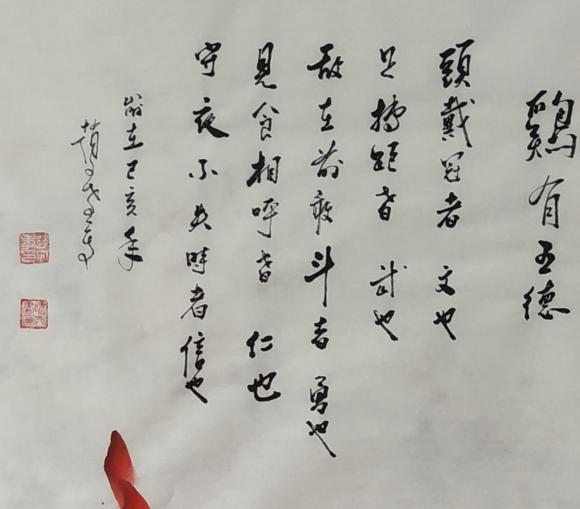 鷄有五德
頭戴冠者 文也
足搏距者 武也
敵在前敢斗者 勇也
見食相呼者 仁也
守夜不失時者 信也
歲在己亥年